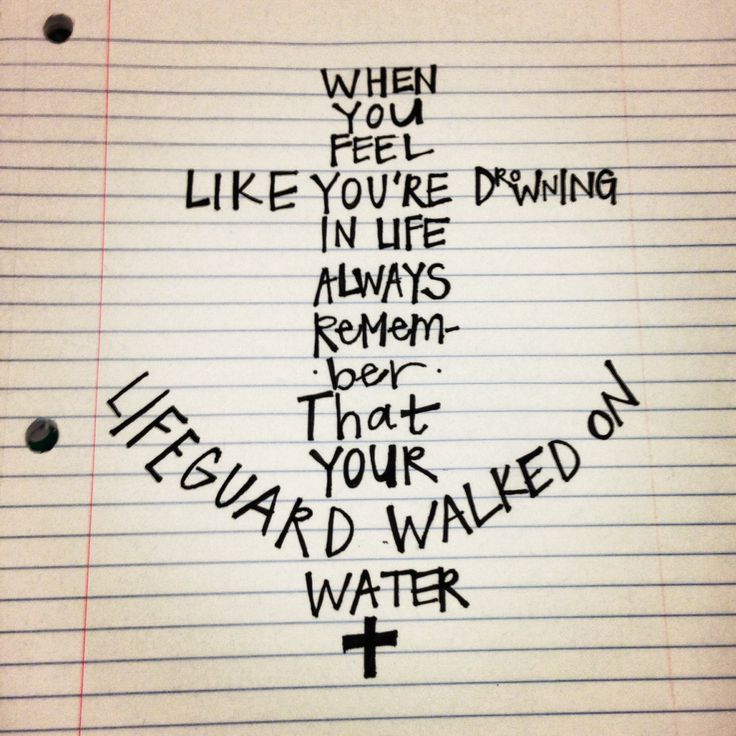 WHEN
YOU
FEEL
LIKE YOU'RE DROWNING
IN LIFE
ALWAYS
ReMem-
·ber·
That
YOUR
LIFEGUARD WALKED ON
WATER